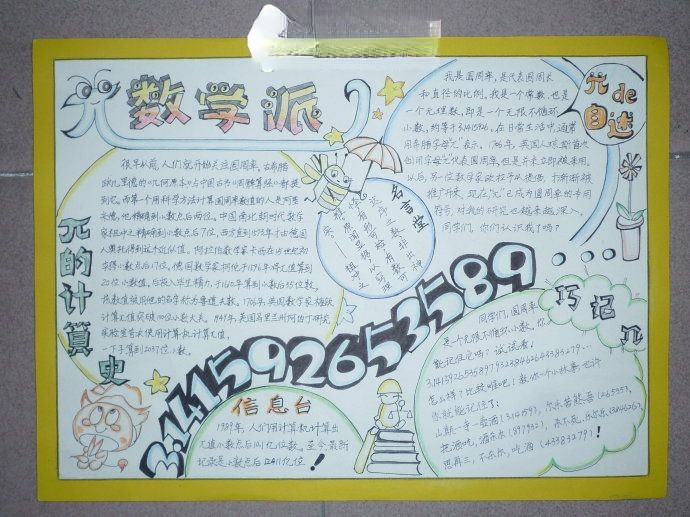 数学派
π的计算史
很早以前,人们就开始关注圆周率。古希腊
的几里德的《几何原本》与中国古书《周髀算经》都提
到它。而第一个用科学方法计算圆周率数值的人是阿基
米德,他精确到小数点后两位。中国南北朝时代数学
家祖冲之精确到小数点后7位,西方直到1573年才由德国
人奥托得到这个近似值。阿拉伯数学家卡西在15世纪初
求得小数点后17位。德国数学家柯伦于1596年将π值算到
20位小数值,后投入毕生精力,于1610年算到小数后35位数,
该数值被用他的名字称为鲁道夫数。1706年,英国数学家梅钦
计算π值突破100位小数大关。1949年,美国马里兰州阿伯丁研究
实验室首次使用计算机计算π值,
一下子算到2037位小数。
名言堂
迟疾之率,非出神
怪,有形可检,有数可
推。
——祖冲之
π de 自述
我是圆周率,是代表圆周长
和直径的比例。我是一个常数,也是
一个无理数,即是一个无限不循环
小数,约等于3.1415926。在日常生活中,通常
用希腊字母“π”表示。1706年,英国人琼斯首次
创用字母“π”代表圆周率,但是并未立即被采用,
以后,各位数学家欧拉予以提倡,才渐渐被
推广开来,现在“π”已成为圆周率的专用
符号,对我的研究也越来越深入。
同学们,你们认识我了吗?
3.1415926535 89...
信息台
1989年,人们用计算机计算出
π值小数点后10.1亿位数。至今最新
记录是小数点后12411亿位!
巧记π
同学们,圆周率
是一个无限不循环小数,你
能记住它吗?试试看!
3.14159265358979323846264338327 9...
怎么样?比较难吧!教你一个小故事也许
你就能记住了:
山巅一寺一壶酒(3.14159),尔乐苦煞吾(26535),
把酒吃,酒杀尔(897932),杀不死,乐尔乐(384626),
思再三,不乐尔,吃酒(433832 79)!